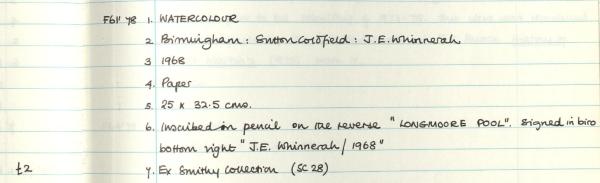 F611'78 1. WATERCOLOUR
2. Birmingham: Sutton Coldfield: J.E. Whinnerah
3. 1968
4. Paper
5. 25 x 32.5 cms.
6. Inscribed in pencil on the reverse "LONGMOORE POOL". Signed in biro
bottom right "J.E. Whinnerah/1968"
£2 7. Ex Smithy Collection (SC 28)